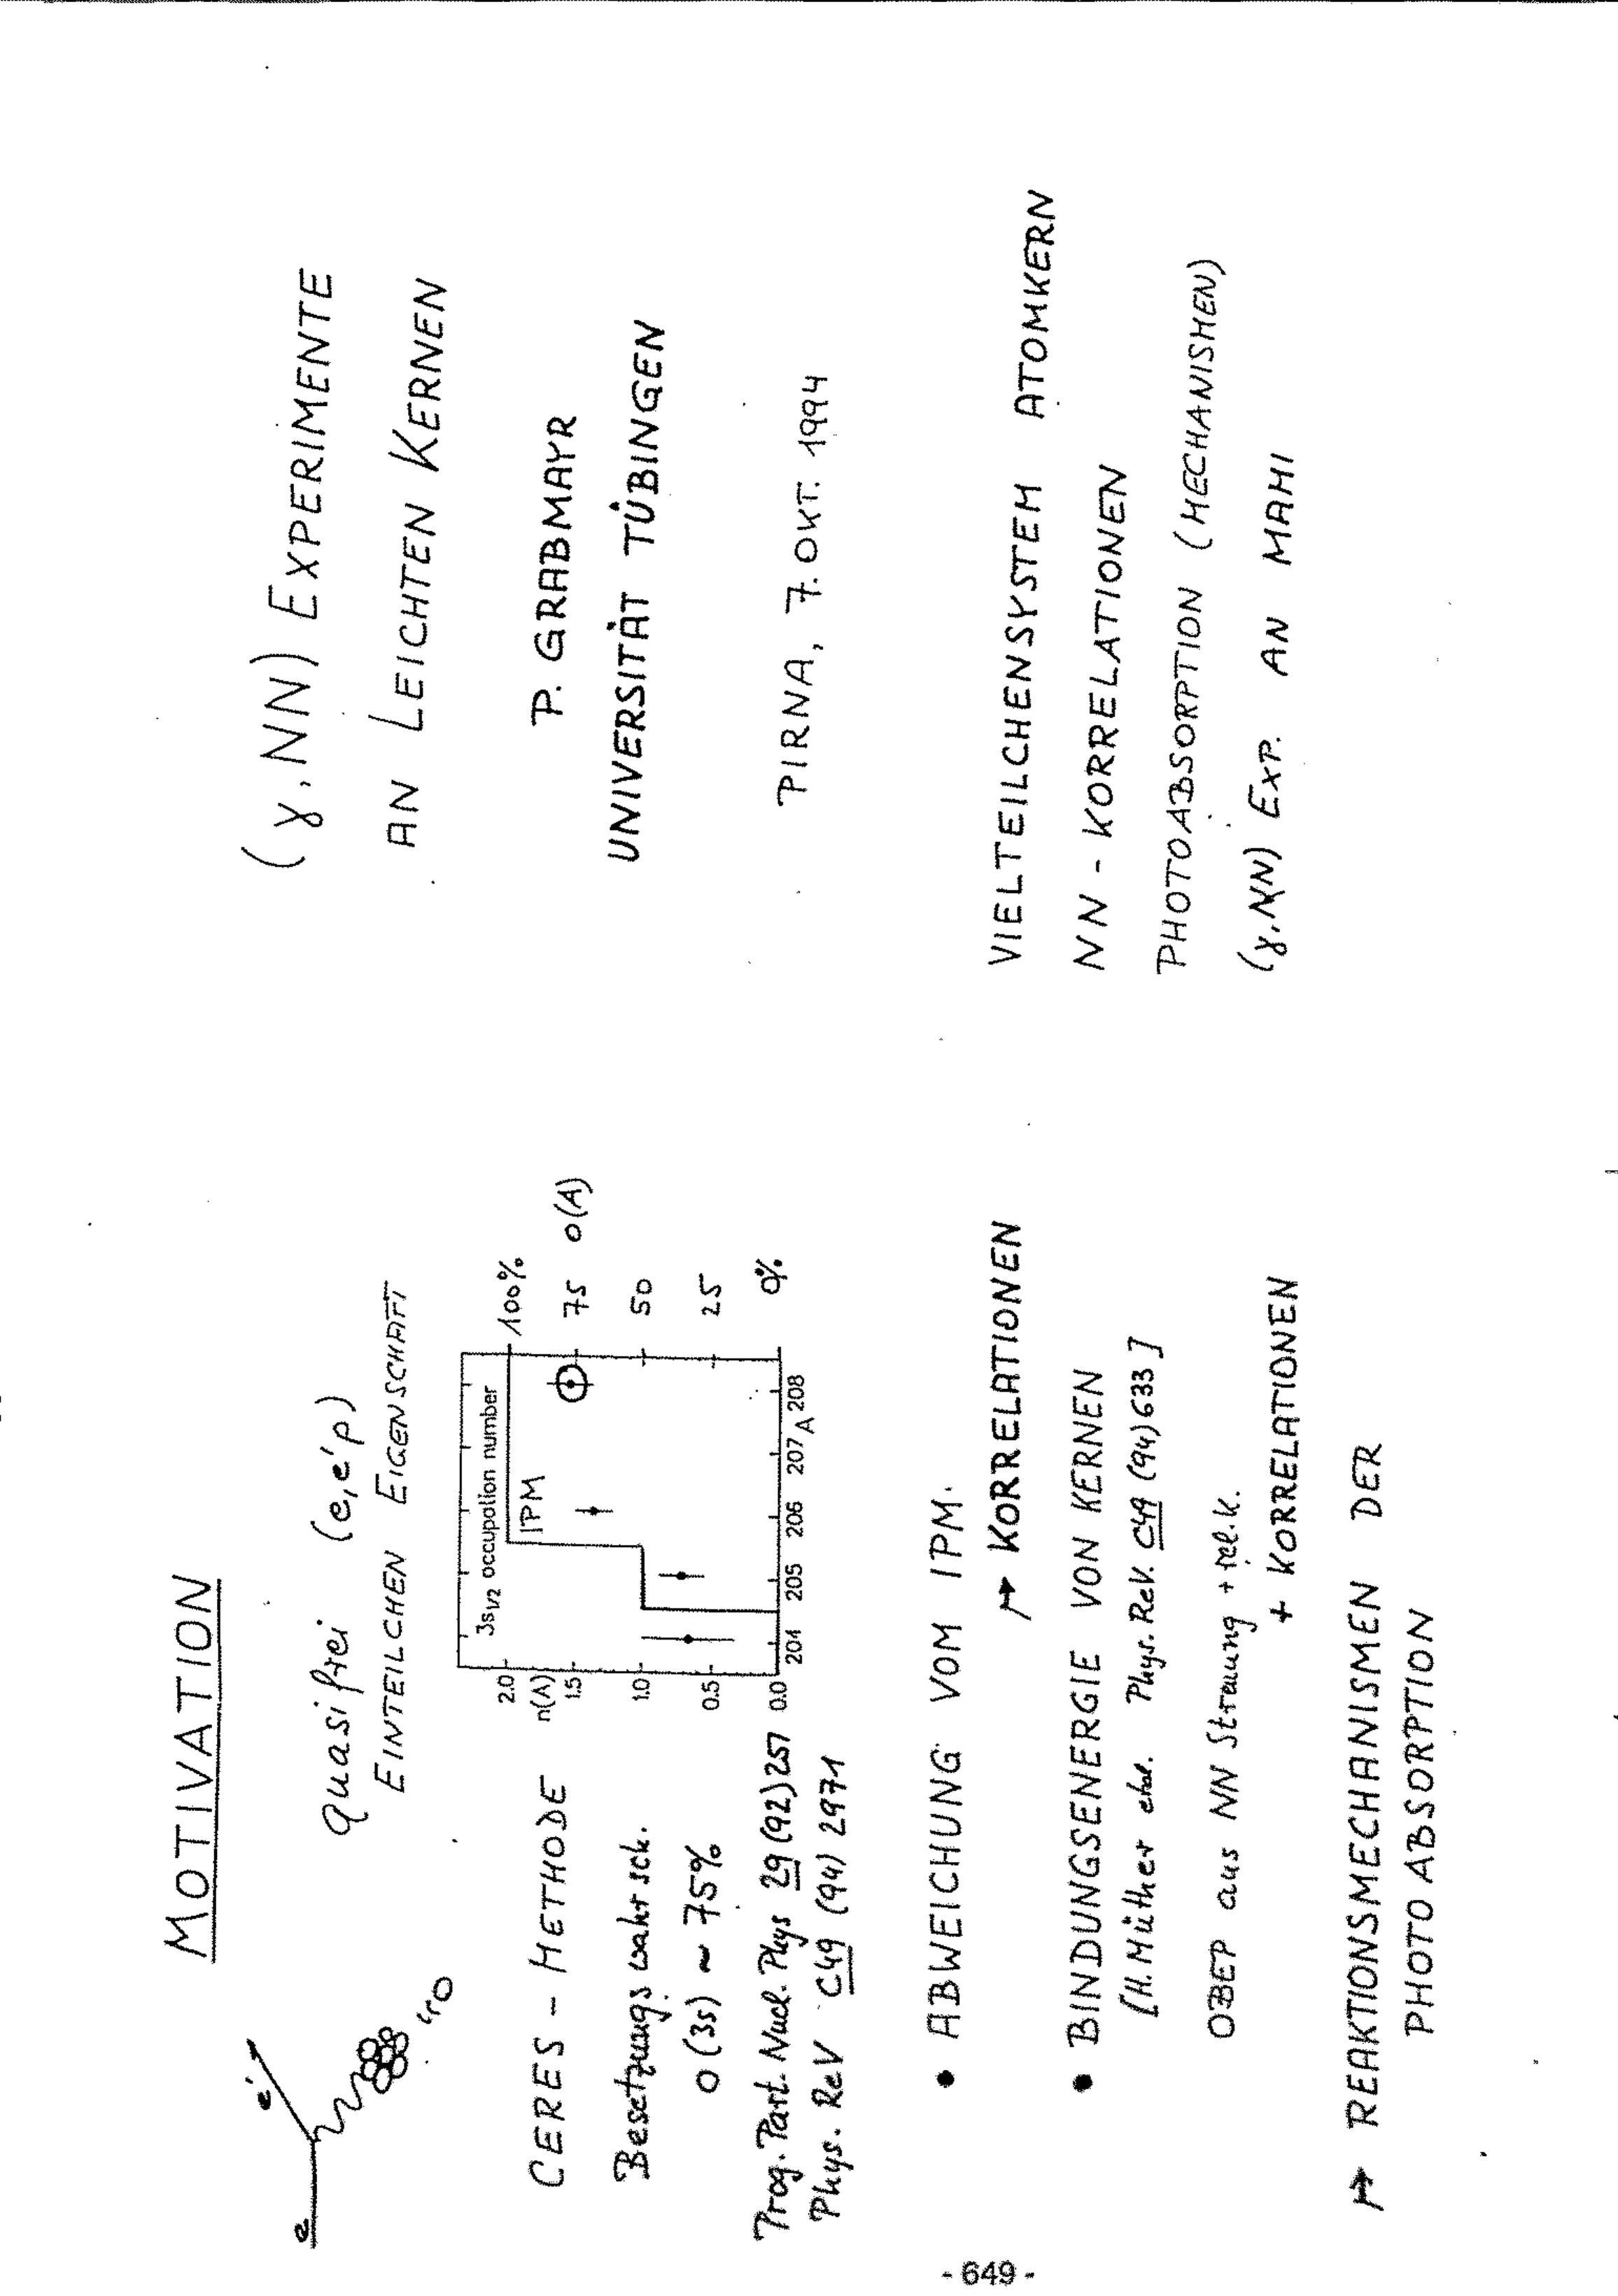 (γ,NN) EXPERIMENTE
AN LEICHTEN KERNEN
P. GRABMAYR
UNIVERSITÄT TÜBINGEN
PIRNA, 7. OKT. 1994
VIELTEILCHENSYSTEM ATOMKERN
NN - KORRELATIONEN
PHOTOABSORPTION (MECHANISMEN)
(γ,NN) EXP. AN MAMI
MOTIVATION
e
e'
quasifrei (e,e'p)
EINTEILCHEN EIGENSCHAFT
CERES - METHODE
Besetzungswahrsch.
O(3s) ~ 75%
Prog. Part. Nucl. Phys 29 (92) 257
Phys. ReV C49 (94) 2971
3s1/2 occupation number
IPM
2.0
n(A)
1.5
1.0
0.5
0.0
204 205 206 207 A 208
100%
75 O(A)
50
25
0%
• ABWEICHUNG VOM IPM.
↦ KORRELATIONEN
• BINDUNGSENERGIE VON KERNEN
[H. Müther etal. Phys. ReV. C49 (94) 633]
OBEP aus NN Streuung + rel. K.
+ KORRELATIONEN
↦ REAKTIONSMECHANISMEN DER
PHOTOABSORPTION
- 649 -